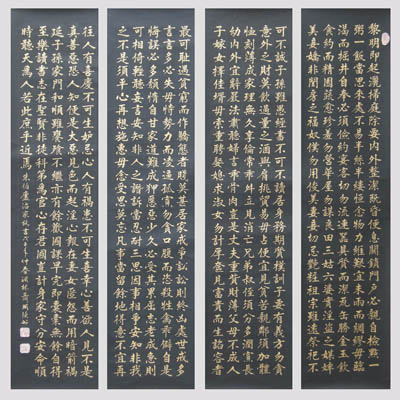 黎明即起灑掃庭除要內外整潔既昏便息關鎖門戶必親自檢點一
粥一飯當思來處不易半絲半縷恆念物力維艱宜未雨而綢繆毋臨
渴而掘井自奉必須儉約宴客切勿流連器具質而潔瓦缶勝金玉飲
食約而精園蔬愈珍饈勿營華屋勿謀良田三姑六婆實淫盜之媒婢
美妾嬌非閨房之福奴僕勿用俊美妻妾切忌艷粧祖宗雖遠祭祀不
可不誠子孫雖愚經書不可不讀居身務期質樸訓子要有義方勿貪
意外之財莫飲過量之酒與肩挑貿易毋佔便宜見貧苦親鄰須加
恤刻薄成家理無久享倫常乖舛立見消亡兄弟叔侄須分多潤寡長
幼內外宜辭嚴法肅聽婦言乖骨肉豈是丈夫重資財薄父母不成人
子嫁女擇佳壻毋索重聘娶媳求淑女勿計厚奩見富貴而生諂容者
最可恥遇貧窮而作驕態者賤莫甚居家戒爭訟訟則終凶處世戒多
言言多必失毋恃勢力而凌逼孤寡勿貪口腹而恣殺牲禽乖僻自是
悔誤必多頹惰自甘家道難成狎昵惡少久必受其累屈志老成急則
可相倚輕聽發言安知非人之譖訴當忍耐三思因事相爭安知非我
之不是須平心再想施惠毋念受恩莫忘凡事當留餘地得意不宜再
往人有喜慶不可生妒忌心人有禍患不可生喜幸心善欲人見不是
真善惡恐人知便是大惡見色而起淫心報在妻女匿怨而用暗箭禍
延子孫家門和順雖饔飧不繼亦有餘歡國課早完即囊橐無餘自得
至樂讀書志在聖賢非徒科第為官心存君國豈計身家守分安命順
時聽天為人若此庶乎近焉 朱伯廬治家格言